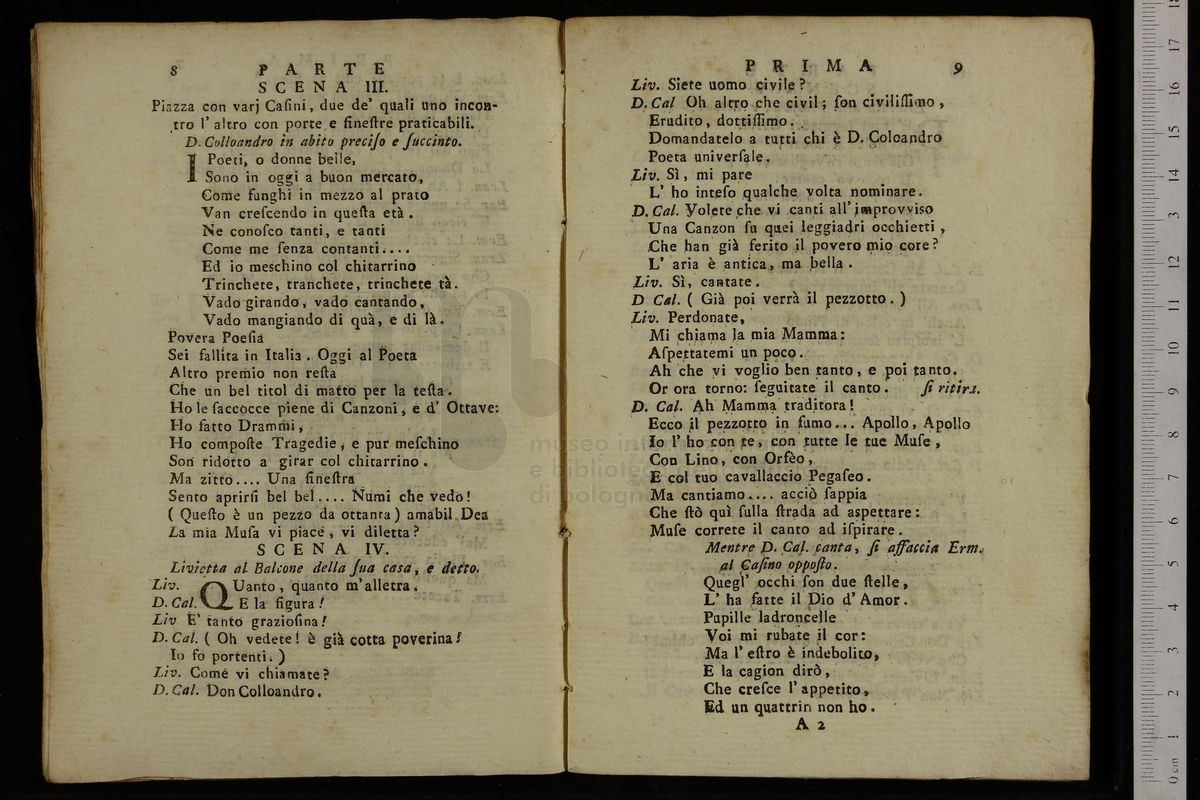 8 PARTE
SCENA III.
Piazza con varj Caſini, due de' quali uno incon-
tro l' altro con porte e fineſtre praticabili.
D. Colloandro in abito preciſo e ſuccinto.
I Poeti, o donne belle,
Sono in oggi a buon mercato,
Come funghi in mezzo al prato
Van creſcendo in queſta età.
Ne conoſco tanti, e tanti
Come me ſenza contanti....
Ed io meschino col chitarrino
Trinchete, tranchete, trinchete tà.
Vado girando, vado cantando,
Vado mangiando di quà, e di là.
Povera Poeſia
Sei fallita in Italia. Oggi al Poeta
Altro premio non reſta
Che un bel titol di matto per la teſta.
Ho le ſaccocce piene di Canzoni, e d' Ottave:
Ho fatto Drammi,
Ho compoſte Tragedie, e pur meſchino
Son ridotto a girar col chitarrino.
Ma zitto.... Una fineſtra
Sento aprirſi bel bel.... Numi che vedo!
( Queſto è un pezzo da ottanta ) amabil Dea
La mia Muſa vi piace, vi diletta?
SCENA IV.
Livietta al Balcone della ſua caſa, e detto.
Liv. QUanto, quanto m'alletta.
D. Cal. E la figura!
Liv E' tanto grazioſina!
D. Cal. ( Oh vedete! è già cotta poverina!
Io fo portenti. )
Liv. Come vi chiamate?
D. Cal. Don Colloandro.
PRIMA 9
Liv. Siete uomo civile?
D. Cal Oh altro che civil; ſon civiliſſimo,
Erudito, dottiſſimo.
Domandatelo a tutti chi è D. Coloandro
Poeta univerſale.
Liv. Sì, mi pare
L' ho inteſo qualche volta nominare.
D. Cal. Volete che vi canti all' improvviso
Una Canzon ſu quei leggiadri occhietti,
Che han già ferito il povero mio core?
L' aria è antica, ma bella.
Liv. Sì, cantate.
D Cal. ( Già poi verrà il pezzotto. )
Liv. Perdonate,
Mi chiama la mia Mamma:
Aſpettatemi un poco.
Ah che vi voglio ben tanto, e poi tanto.
Or ora torno: ſeguitate il canto. ſi ritira.
D. Cal. Ah Mamma traditora!
Ecco il pezzotto in fumo... Apollo, Apollo
Io l' ho con te, con tutte le tue Muſe,
Con Lino, con Orfèo,
E col tuo cavallaccio Pegaſeo.
Ma cantiamo.... acciò ſappia
Che ſtò quì ſulla ſtrada ad aspettare:
Muſe correte il canto ad iſpirare.
Mentre D. Cal. canta, ſi affaccia Erm.
al Caſino oppoſto.
Quegl' occhi ſon due ſtelle,
L' ha fatte il Dio d' Amor.
Pupille ladroncelle
Voi mi rubate il cor:
Ma l' eſtro è indebolito,
E la cagion dirò,
Che creſce l' appetito,
Ed un quattrin non ho.
A 2